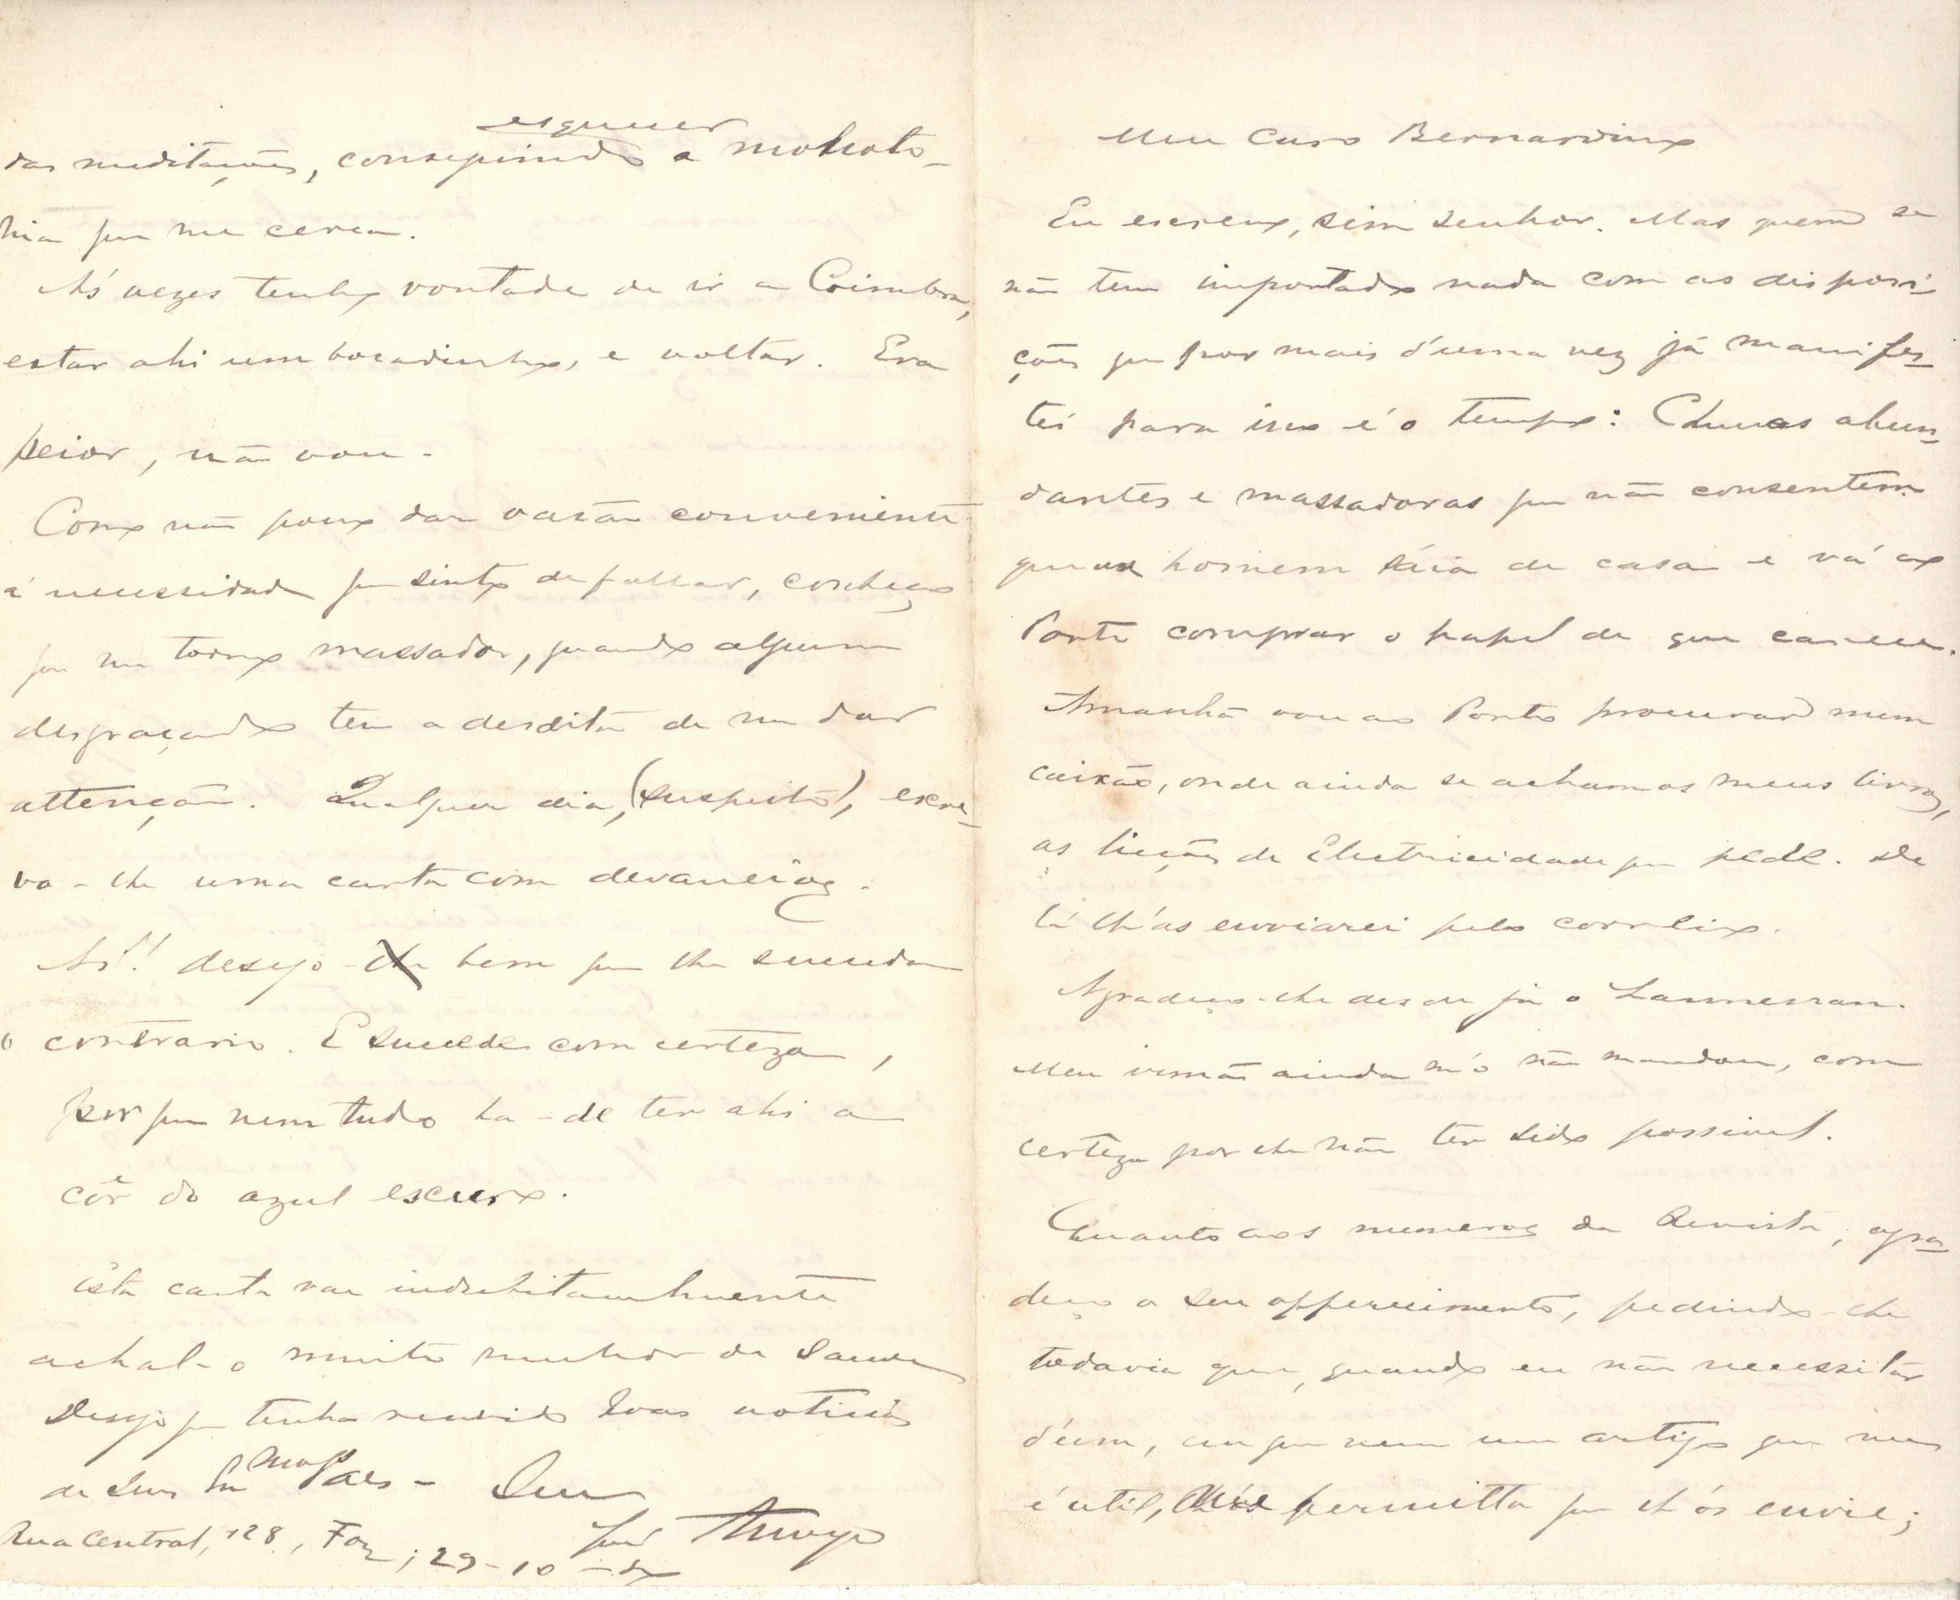 Meu Caro Bernardino
Eu escrevo, sim senhor. Mas quem se
não tem importado nada com as disposi-
ções que por mais d'uma vez já manifes-
tei para isso é o tempo: Chuvas abun-
dantes e massadoras que não consentem
que um homem sáia de casa e vá ao
Porto comprar o papel de que carece.
Amanhã vou ao Porto procurar num
caixão, onde ainda se acham os meus livros,
as licções de Electricidade que pede. De
lá lh'as enviarei pelo correio.
Agradeço-lhe desde já o
Meu irmão ainda m'o não mandou, com
certeza por lhe não ter sido possivel.
Quanto aos numeros da Revista, agra-
deço o seu offerecimento, pedindo-lhe
todavia que, quando eu não necessitar
d'um, em que vem um artigo que me
é util, me permitta que lh'os envie;
das meditações, conseguindo esquecer a monoto-
nia que me cerca.
Ás vezes tenho vontade de ir a Coimbra,
estar ahi um bocadinho, e voltar. Era
peior, não vou.
Como não posso dar vasão conveniente
á necessidade que sinto de fallar, conheço
que me torno massador, quando algum
desgraçado tem a desdita de me dar
attenção. Qualquer dia, (suspeito), escre-
vo-lhe uma carta com devaneios.
Ás! desejo bem que lhe succeda
o contrario. E succede com certeza,
porque nem tudo ha-de ter ahi a
côr do azul escuro.
Esta carta vae indubitavelmente
achal-o muito melhor de saude
Desejo que tenha recebido boas noticias
de seus Paes - Seu
Rua Central, 128, Foz; 29-10-